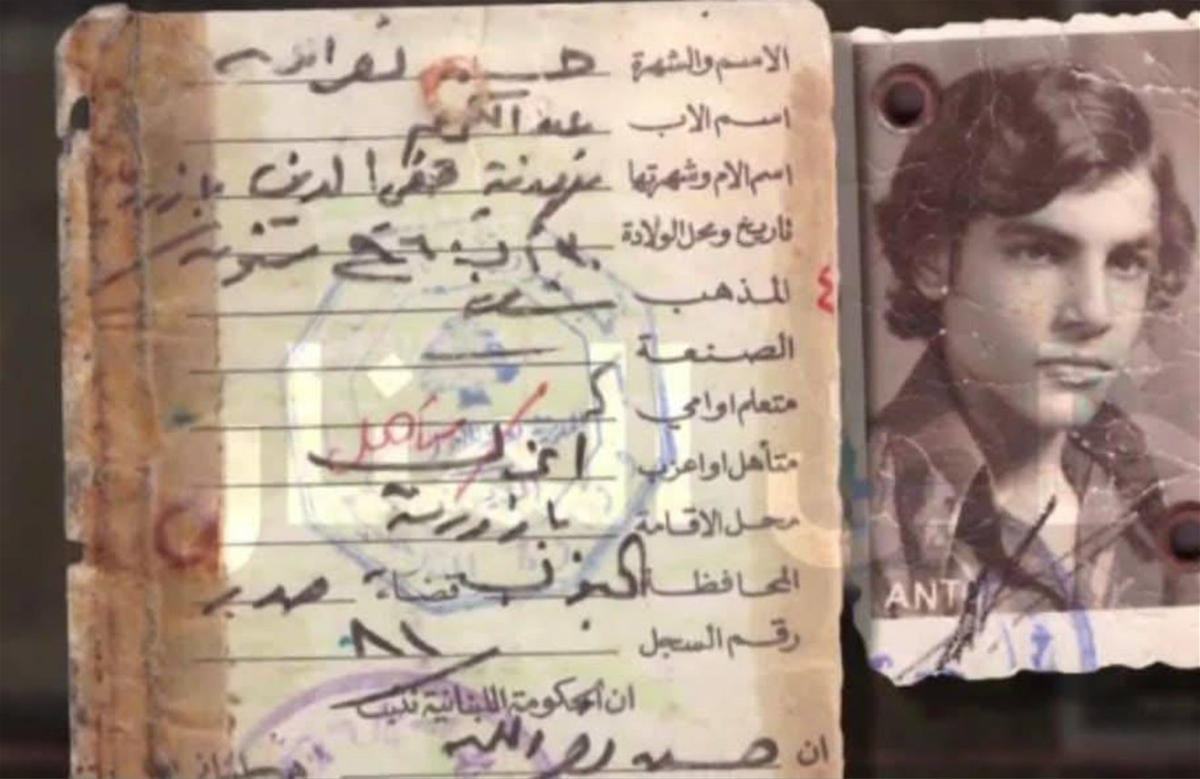 الاسم والشهرة حسن نصر الله
اسم الاب عبد الكريم
اسم الام وشهرتها صفي الدين
تاريخ ومحل الولادة آب
المذهب شيعي
الصنعة
متعلم او امي
متأهل او اعزب اعزب متأهل
محل الاقامة بازورية
المحافظة الجنوب قضاء صور
رقم السجل ٨١
ان الحكومة اللبنانية تثبت
ان حسن نصر الله
٤
ANT
النار